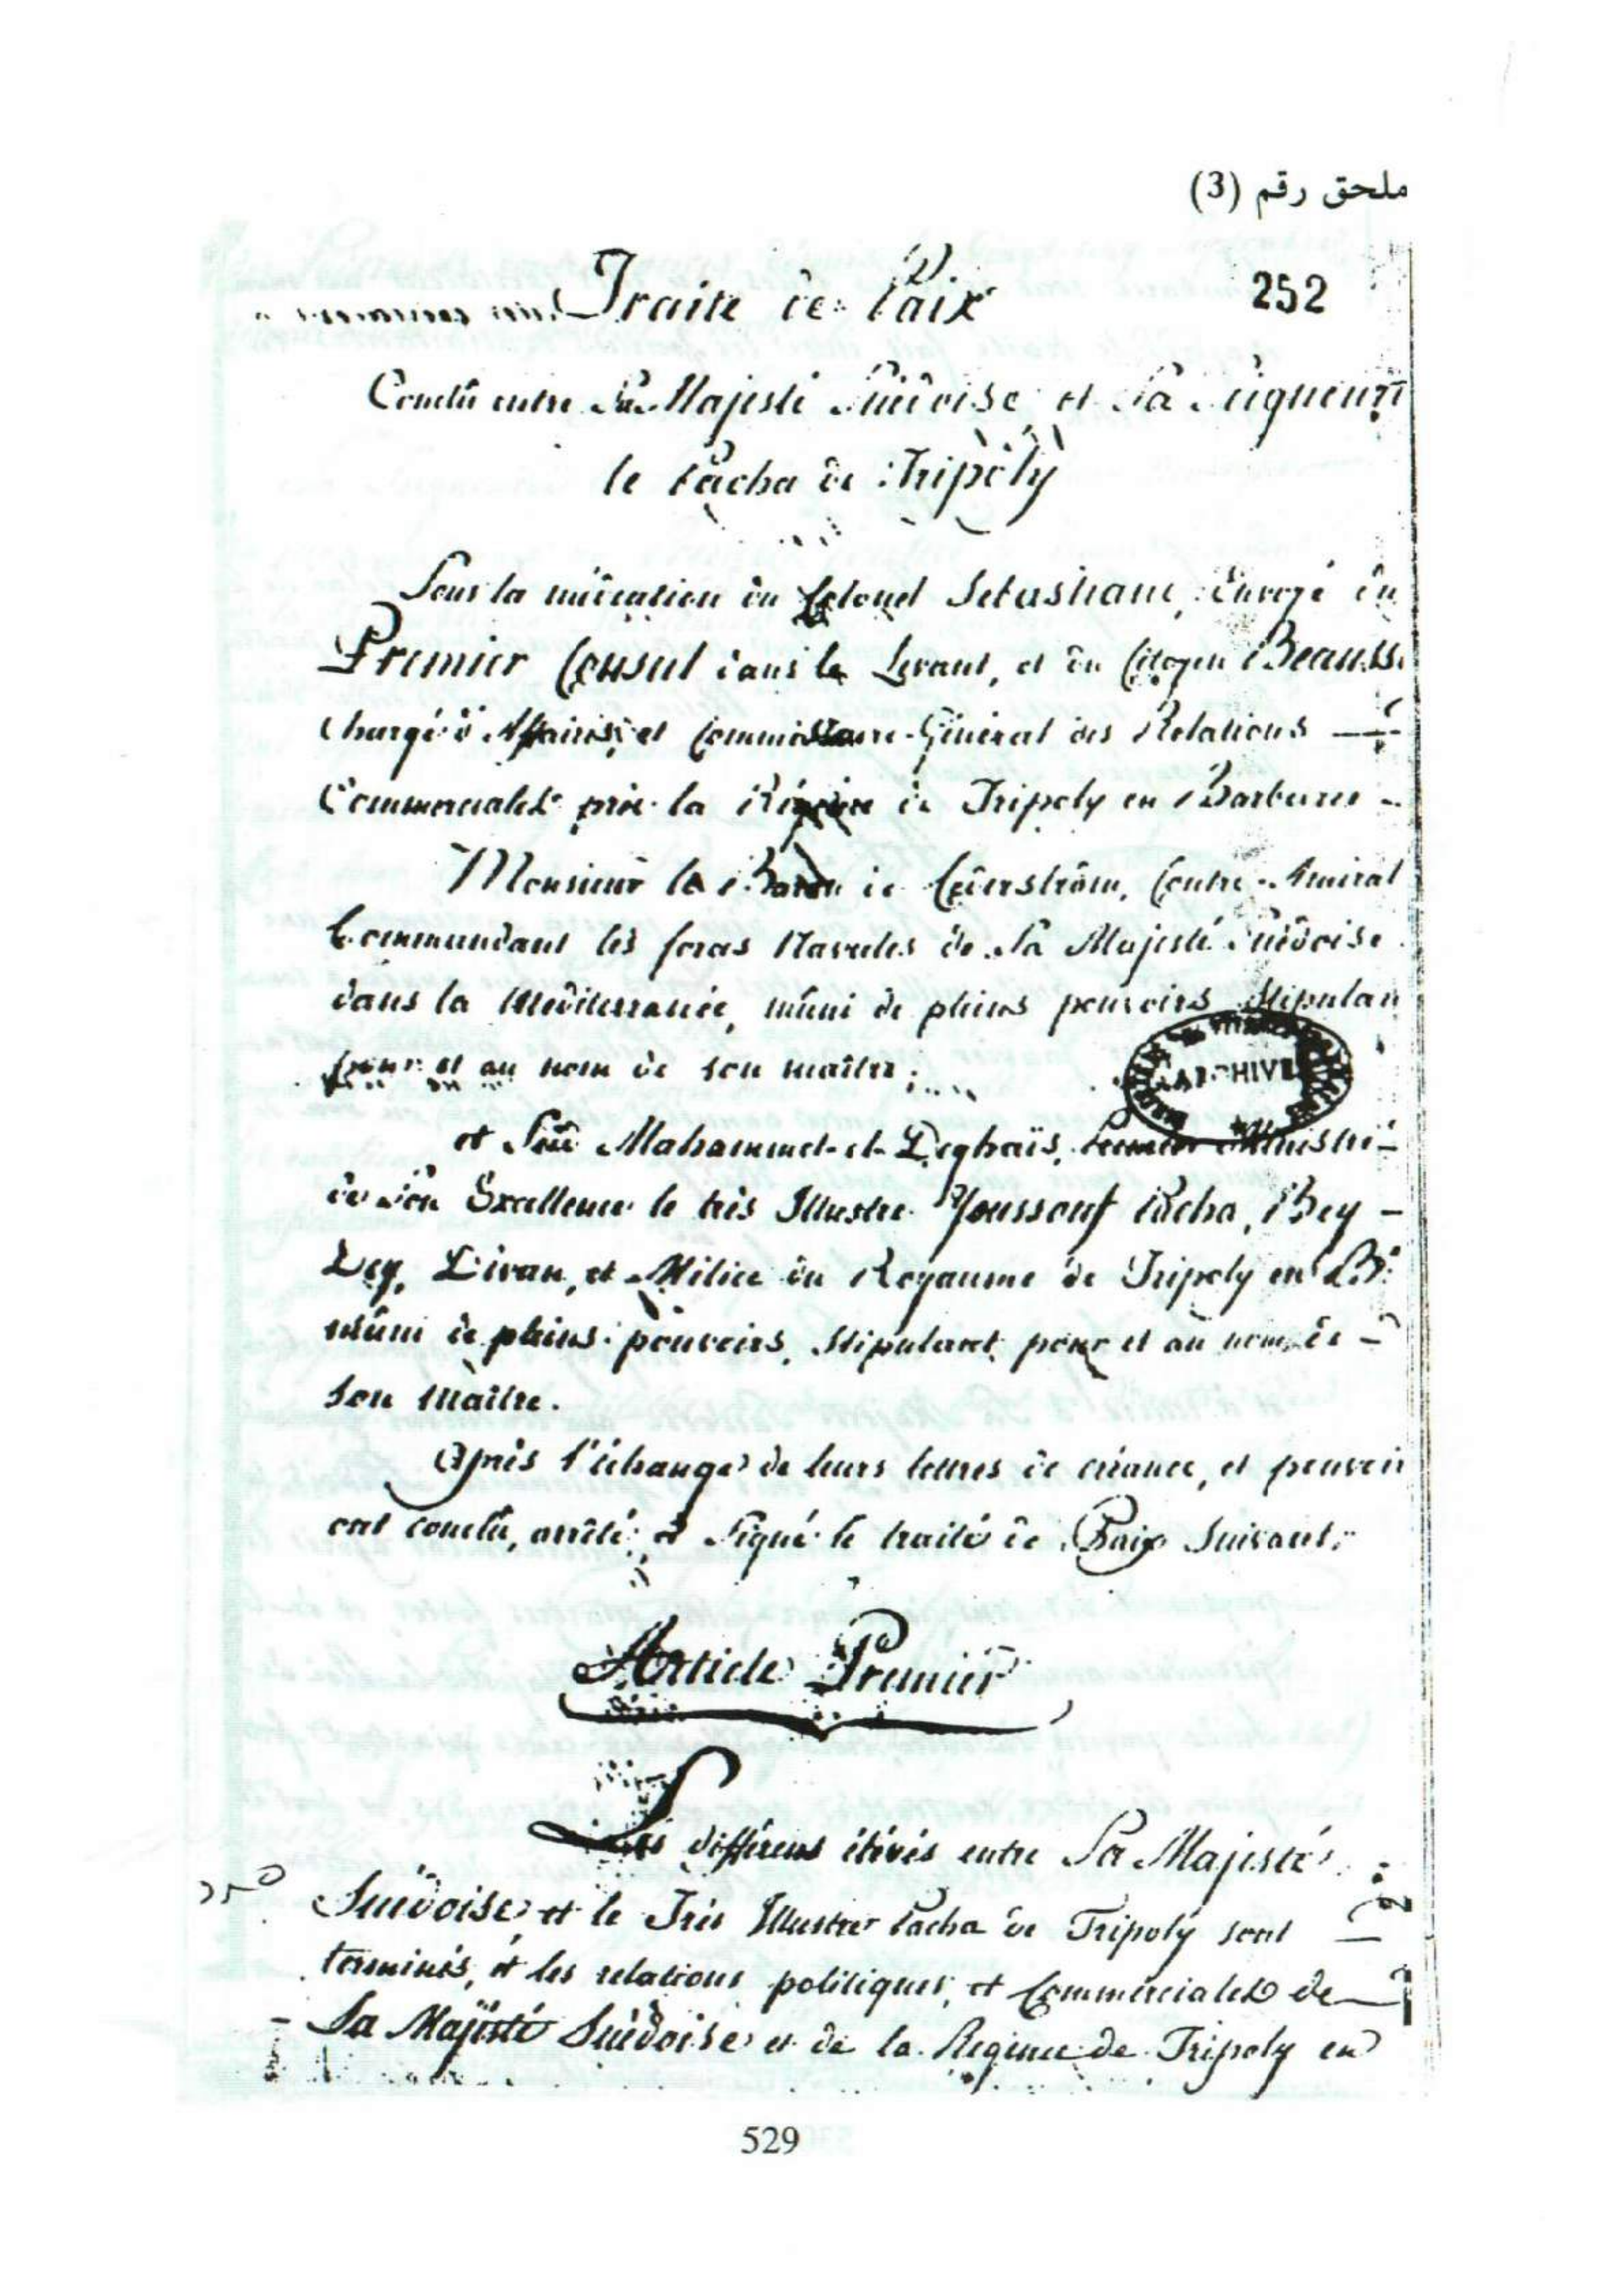 ملحق رقم (3)
252
Traité de Paix
Conclû entre Sa Majesté Suédoise et Sa Seigneurie
le Pacha de Tripoly
Sous la médiation du Colonel Sebastiani, Envoyé du
Premier Consul dans le Levant, et du Citoyen Beauss
Chargé d'Affaires, et Commissaire-Général des Relations
Commerciales près la Régence de Tripoly en Barbarie
Monsieur le Baron de Cederström, Contre-Amiral
Commandant les forces Navales de Sa Majesté Suédoise
dans la Mediterranée, mûni de pleins pouvoirs Stipulan
pour et au nom de son maître;
ARCHIVE
et Sidi Mahammet-el-Deghaïs, Premier Ministre
de Son Excellence le très Illustre Youssouf Pacha, Bey
Dey, Divan, et Milice du Royaume de Tripoly en B
mûni de pleins pouvoirs, Stipulant pour et au nom de
son Maître.
Après l'échange de leurs lettres de créance, et pouvoir
ont conclû, arrêté, et Signé le traité de Paix Suivant:
Article Premier
Les différens élévés entre Sa Majesté
Suédoise et le Très Illustre Pacha de Tripoly sont
terminés, et les relations politiques, et Commerciales de
Sa Majesté Suédoise et de la Régence de Tripoly en
529